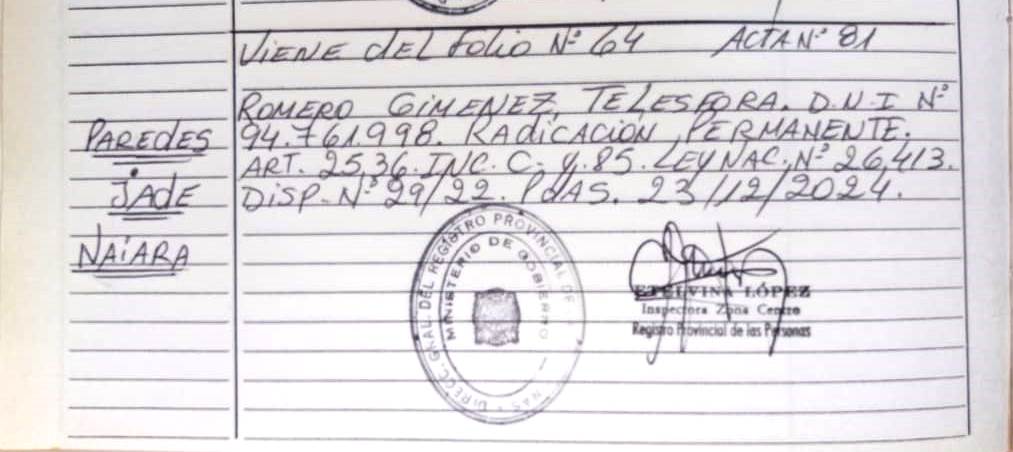 VIENE dEL FOLIO Nº 64 ACTA Nº 81
ROMERO GIMENEZ, TELESFORA. D.N.I Nº
94.761.998. RADICACION PERMANENTE.
ART. 25,36. INC. C. y. 85. LEY NAC. Nº 26,413.
DISP. Nº 29/22. PdAS. 23/12/2024.
PAREDES
JAdE
NAiARA
DIRECC. GRAL. DEL REGISTRO PROVINCIAL DE
MINISTERIO DE GOBIERNO
ETELVINA LÓPEZ
Inspectora Zona Centro
Registro Provincial de las Personas